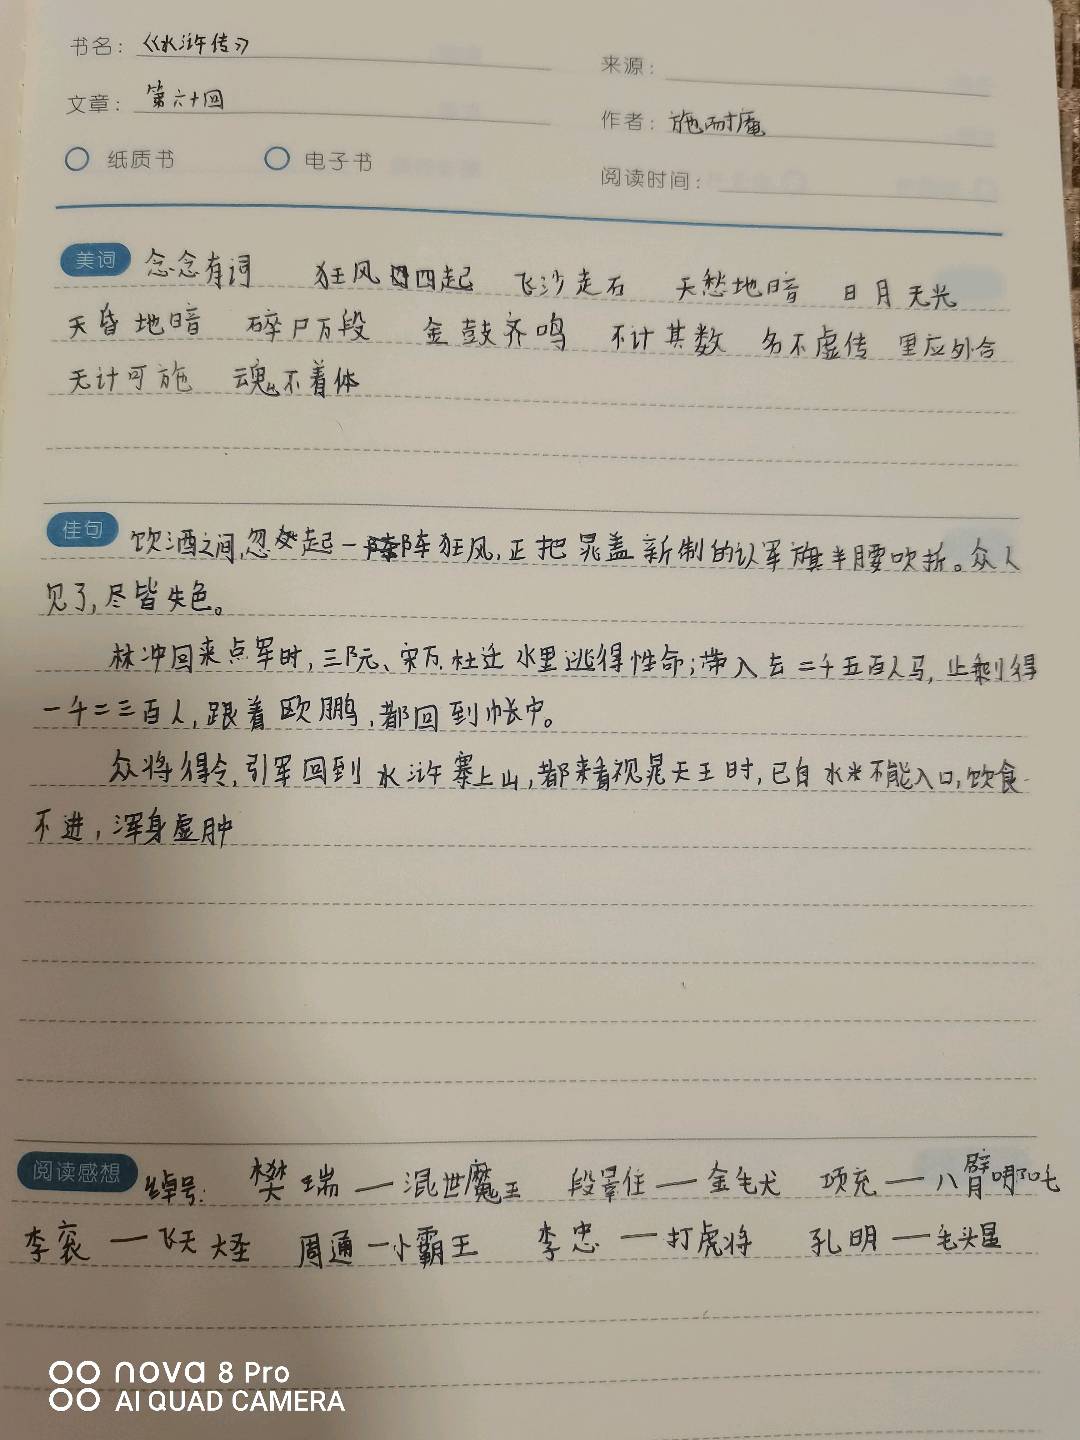 书名：《水浒传》
来源：
文章：第六十回
作者：施耐庵
纸质书 电子书
阅读时间：
美词 念念有词 狂风四起 飞沙走石 天愁地暗 日月无光
天昏地暗 碎尸万段 金鼓齐鸣 不计其数 名不虚传 里应外合
无计可施 魂不着体
佳句 饮酒之间,忽起一阵狂风,正把晁盖新制的认军旗半腰吹折。众人
见了,尽皆失色。
林冲回来点军时,三阮、宋万、杜迁水里逃得性命;带入去二千五百人马,止剩得
一千二三百人,跟着欧鹏,都回到帐中。
众将得令,引军回到水浒寨上山,都来看视晁天王时,已自水米不能入口,饮食
不进,浑身虚肿
阅读感想 绰号: 樊瑞—混世魔王 段景住—金毛犬 项充—八臂哪吒
李衮—飞天大圣 周通—小霸王 李忠—打虎将 孔明—毛头星
nova 8 Pro
AI QUAD CAMERA